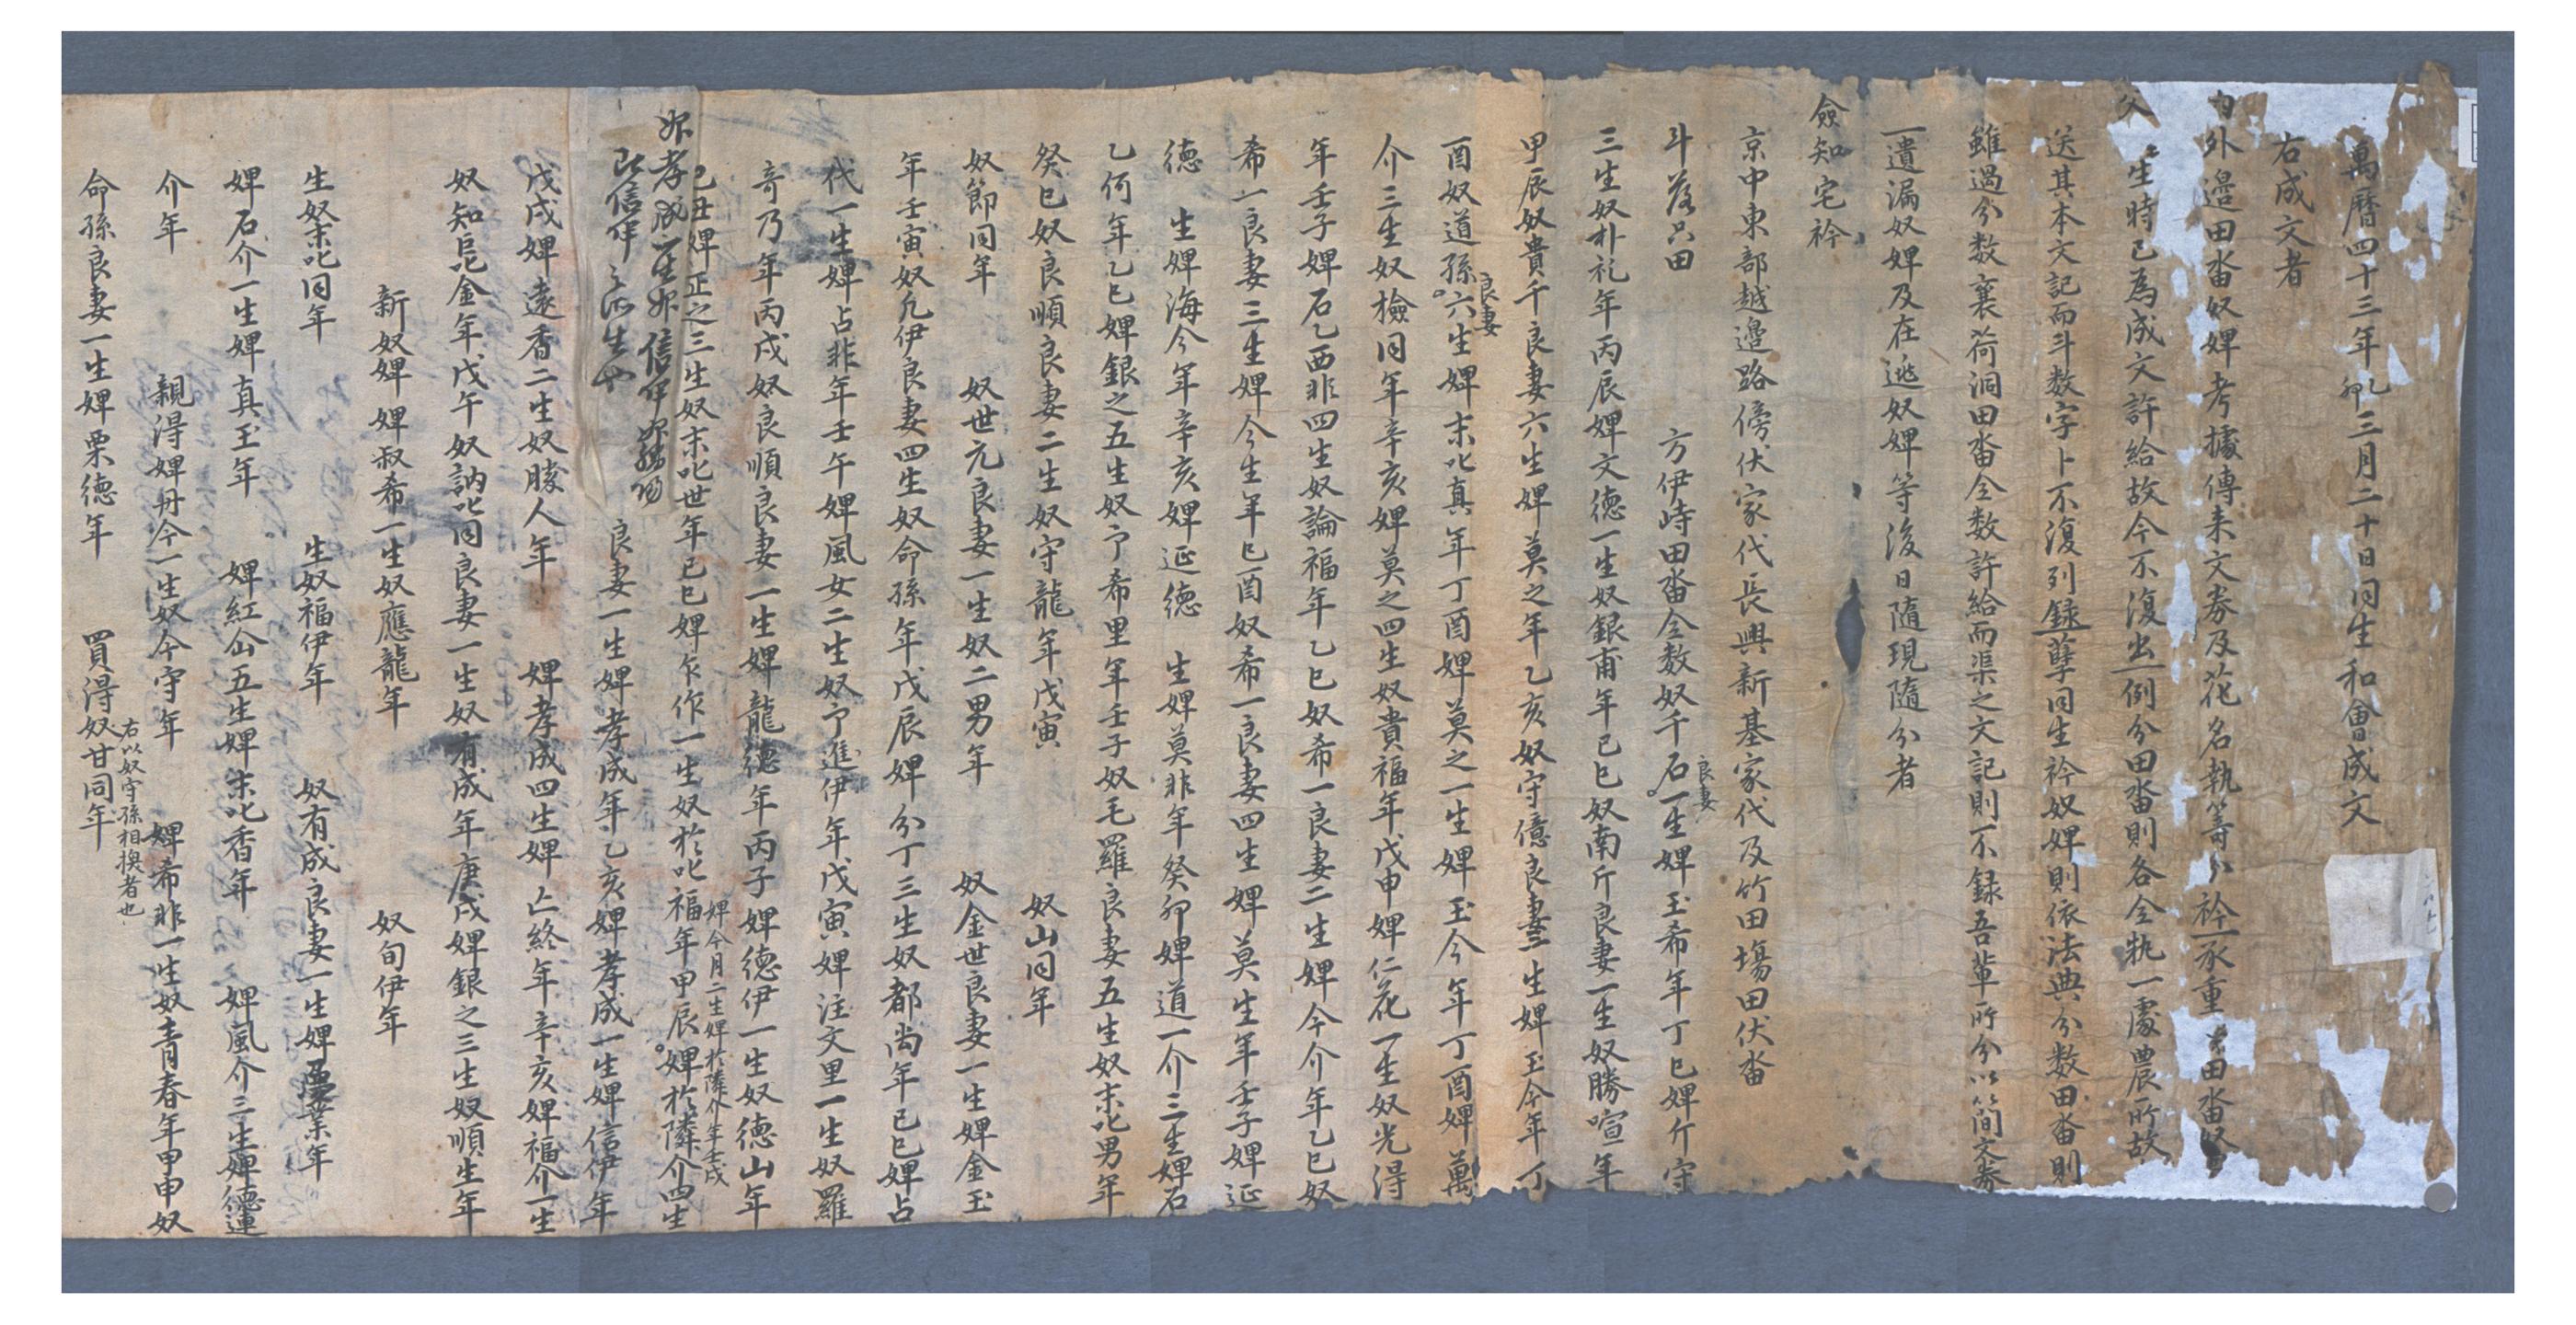 萬曆四十三年乙卯三月二十日同生和會成文
右成文者
內外邊田畓奴婢考據傳來文券及花名執籌分衿一承重田畓奴婢
父生時已爲成文許給故今不復出一例分田畓則各全執一處農所故
送其本文記而斗數字卜不復列錄一孼同生衿奴婢則依法典分數田畓則
雖過分數襄荷洞田畓全數許給而渠之文記則不錄吾輩所分以簡文券
一遺漏奴婢及在逃奴婢等後日隨現隨分者
僉知宅衿
京中東部越邊路傍伏家代長興新基家代及竹田場田伏畓
斗落只田 方伊峙田畓全數奴千石良妻一生婢玉希年丁巳婢斤守
三生奴朴礼年丙辰婢文德一生奴銀甫年己巳奴南斤良妻一生奴勝喧年
甲辰奴貴千良妻六生婢莫之年乙亥奴守億良妻三生婢玉今年丁
酉奴道孫良妻六生婢末叱真年丁酉婢莫之一生婢玉今年丁酉婢萬
介三生奴檢同年辛亥婢莫之四生奴貴福年戊申婢仁花一生奴光得
年壬子婢石乙西非四生奴論福年乙巳奴希一良妻二生婢今介年乙巳奴
希一良妻三生婢今生年己酉奴希一良妻四生婢莫生年壬子婢延
德 生婢海今年辛亥婢延德 生婢莫非年癸卯婢道一介三生婢石
乙何年乙巳婢銀之五生奴亇希里年壬子奴毛羅良妻五生奴末叱男年
癸巳奴良順良妻二生奴守龍年戊寅 奴山同年
奴節同年 奴世元良妻一生奴二男年 奴金世良妻一生婢金玉
年壬寅奴凡伊良妻四生奴命孫年戊辰婢分丁三生奴都尚年己巳婢占
代一生婢占非年壬午婢風女二生奴亇進伊年戊寅婢注文里一生奴羅
奇乃年丙戌奴良順良妻一生婢龍德年丙子婢德伊一生奴德山年
己丑婢正之三生奴末叱世年己巳婢乍作一生奴於叱福年甲辰婢今月二生婢於隣介年壬戌婢於隣介四生
婢孝成一生婢信伊
此信伊之所生也
良妻一生婢孝成年乙亥婢孝成一生婢信伊年
戊戌婢遠香二生奴勝人年 婢孝成四生婢亡終年辛亥婢福介一生
奴知叱金年戊午奴訥叱同良妻一生奴有成年庚戌婢銀之三生奴順生年
新奴婢婢叔希一生奴應龍年 奴旬伊年
生奴末叱同年 生奴福伊年 奴有成良妻一生婢業年
婢石介一生婢真玉年 婢紅仚五生婢末叱香年 婢風介三生婢德連
介年 親得婢丹今一生奴今守年 婢希非一生奴青春年甲申奴
右以奴守孫相換者也
命孫良妻一生婢栗德年 買得奴甘同年